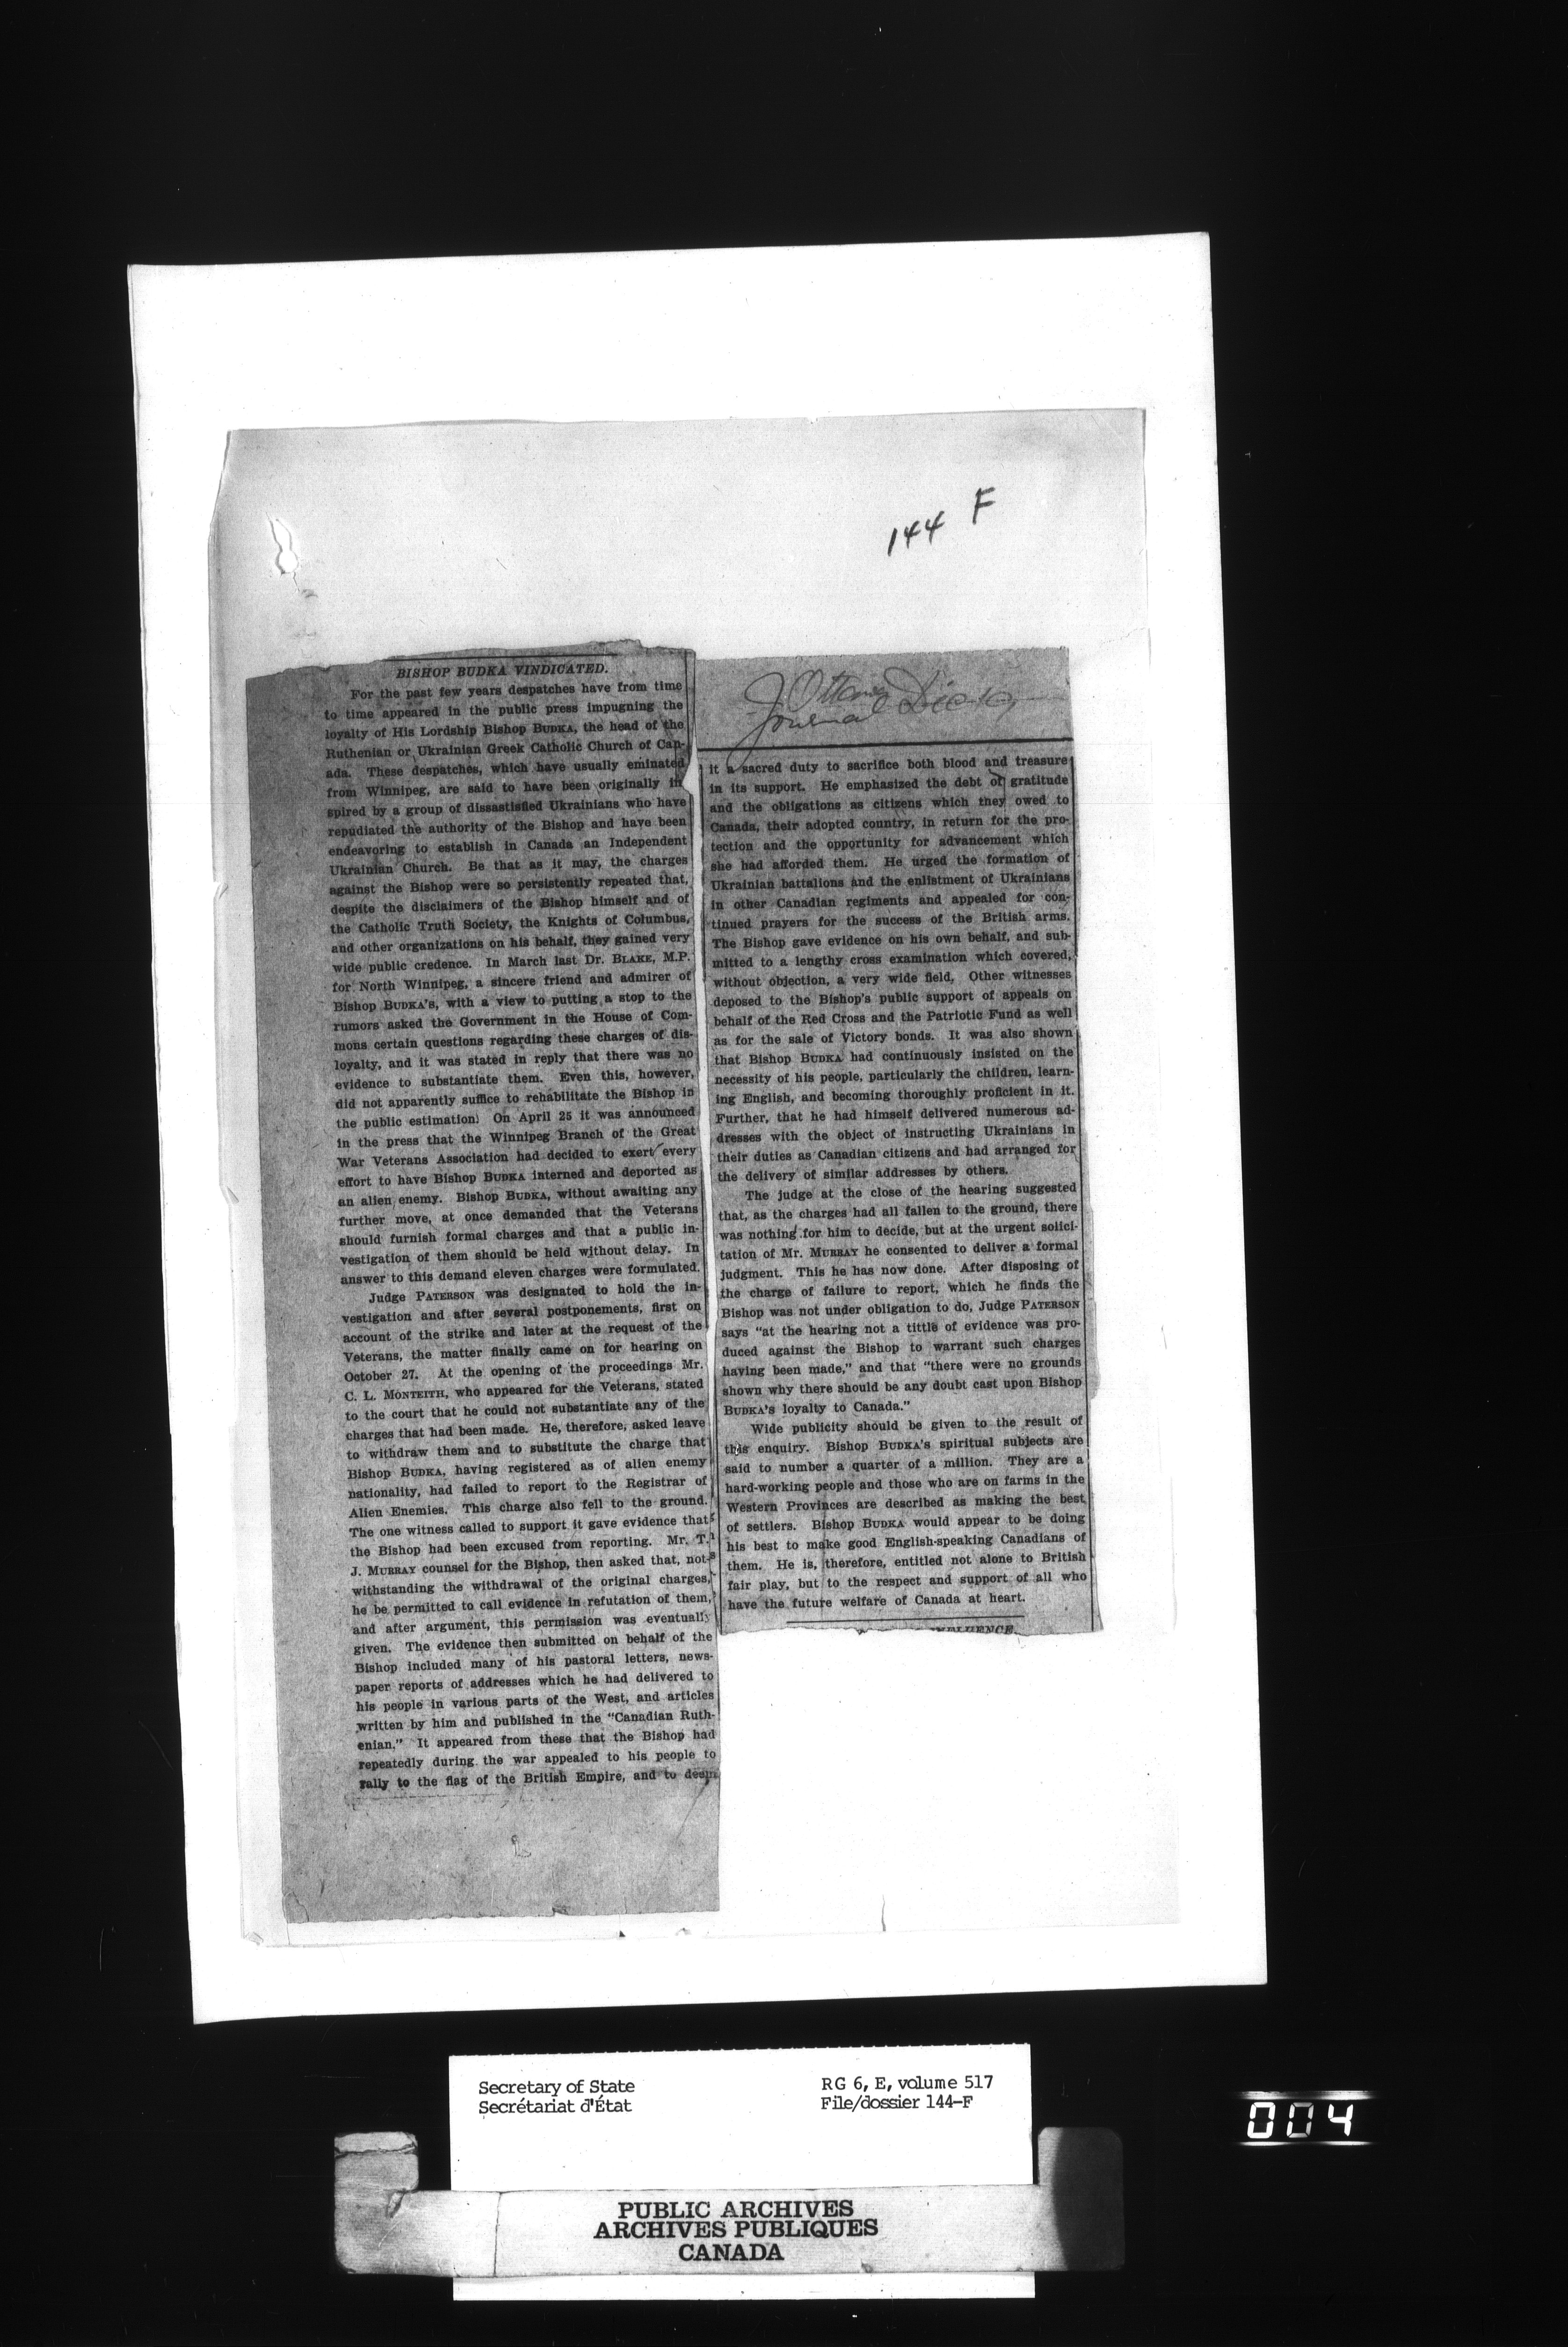 144 F
BISHOP BUDKA VINDICATED.
For the past few years despatches have from time
to time appeared in the public press impugning the
loyalty of His Lordship Bishop BUDKA, the head of the
Ruthenian or Ukrainian Greek Catholic Church of Can-
ada. These despatches, which have usually eminated
from Winnipeg, are said to have been originally in
spired by a group of dissastisfied Ukrainians who have
repudiated the authority of the Bishop and have been
endeavoring to establish in Canada an Independent
Ukrainian Church. Be that as it may, the charges
against the Bishop were so persistently repeated that,
despite the disclaimers of the Bishop himself and of
the Catholic Truth Society, the Knights of Columbus,
and other organizations on his behalf, they gained very
wide public credence. In March last Dr. BLAKE, M.P.
for North Winnipeg, a sincere friend and admirer of
Bishop BUDKA'S, with a view to putting a stop to the
rumors asked the Government in the House of Com-
mons certain questions regarding these charges of dis-
loyalty, and it was stated in reply that there was no
evidence to substantiate them. Even this, however,
did not apparently suffice to rehabilitate the Bishop in
the public estimation. On April 25 it was announced
in the press that the Winnipeg Branch of the Great
War Veterans Association had decided to exert every
effort to have Bishop BUDKA interned and deported as
an alien enemy. Bishop BUDKA, without awaiting any
further move, at once demanded that the Veterans
should furnish formal charges and that a public in-
vestigation of them should be held without delay. In
answer to this demand eleven charges were formulated.
Judge PATERSON was designated to hold the in-
vestigation and after several postponements, first on
account of the strike and later at the request of the
Veterans, the matter finally came on for hearing on
October 27. At the opening of the proceedings Mr.
C. L. MONTEITH, who appeared for the Veterans, stated
to the court that he could not substantiate any of the
charges that had been made. He, therefore, asked leave
to withdraw them and to substitute the charge that
Bishop BUDKA, having registered as of alien enemy
nationality, had failed to report to the Registrar of
Alien Enemies. This charge also fell to the ground.
The one witness called to support it gave evidence that
the Bishop had been excused from reporting. Mr. T.
J. MURRAY counsel for the Bishop, then asked that, not-
withstanding the withdrawal of the original charges,
he be permitted to call evidence in refutation of them,
and after argument, this permission was eventually
given. The evidence then submitted on behalf of the
Bishop included many of his pastoral letters, news-
paper reports of addresses which he had delivered to
his people in various parts of the West, and articles
written by him and published in the "Canadian Ruth-
enian." It appeared from these that the Bishop had
repeatedly during the war appealed to his people to
rally to the flag of the British Empire, and to deem
Ottawa
Journal
it a sacred duty to sacrifice both blood and treasure
in its support. He emphasized the debt of gratitude
and the obligations as citizens which they owed to
Canada, their adopted country, in return for the pro-
tection and the opportunity for advancement which
she had afforded them. He urged the formation of
Ukrainian battalions and the enlistment of Ukrainians
in other Canadian regiments and appealed for con-
tinued prayers for the success of the British arms.
The Bishop gave evidence on his own behalf, and sub-
mitted to a lengthy cross examination which covered,
without objection, a very wide field. Other witnesses
deposed to the Bishop's public support of appeals on
behalf of the Red Cross and the Patriotic Fund as well
as for the sale of Victory bonds. It was also shown
that Bishop BUDKA had continuously insisted on the
necessity of his people, particularly the children, learn-
ing English, and becoming thoroughly proficient in it.
Further, that he had himself delivered numerous ad-
dresses with the object of instructing Ukrainians in
their duties as Canadian citizens and had arranged for
the delivery of similar addresses by others.
The judge at the close of the hearing suggested
that, as the charges had all fallen to the ground, there
was nothing for him to decide, but at the urgent solici-
tation of Mr. MURRAY he consented to deliver a formal
judgment. This he has now done. After disposing of
the charge of failure to report, which he finds the
Bishop was not under obligation to do, Judge PATERSON
says "at the hearing not a tittle of evidence was pro-
duced against the Bishop to warrant such charges
having been made," and that "there were no grounds
shown why there should be any doubt cast upon Bishop
BUDKA'S loyalty to Canada."
Wide publicity should be given to the result of
this enquiry. Bishop BUDKA'S spiritual subjects are
said to number a quarter of a million. They are a
hard-working people and those who are on farms in the
Western Provinces are described as making the best
of settlers. Bishop BUDKA would appear to be doing
his best to make good English-speaking Canadians of
them. He is, therefore, entitled not alone to British
fair play, but to the respect and support of all who
have the future welfare of Canada at heart.
Secretary of State
Secrétariat d'État
RG 6, E, volume 517
File/dossier 144-F
004
PUBLIC ARCHIVES
ARCHIVES PUBLIQUES
CANADA